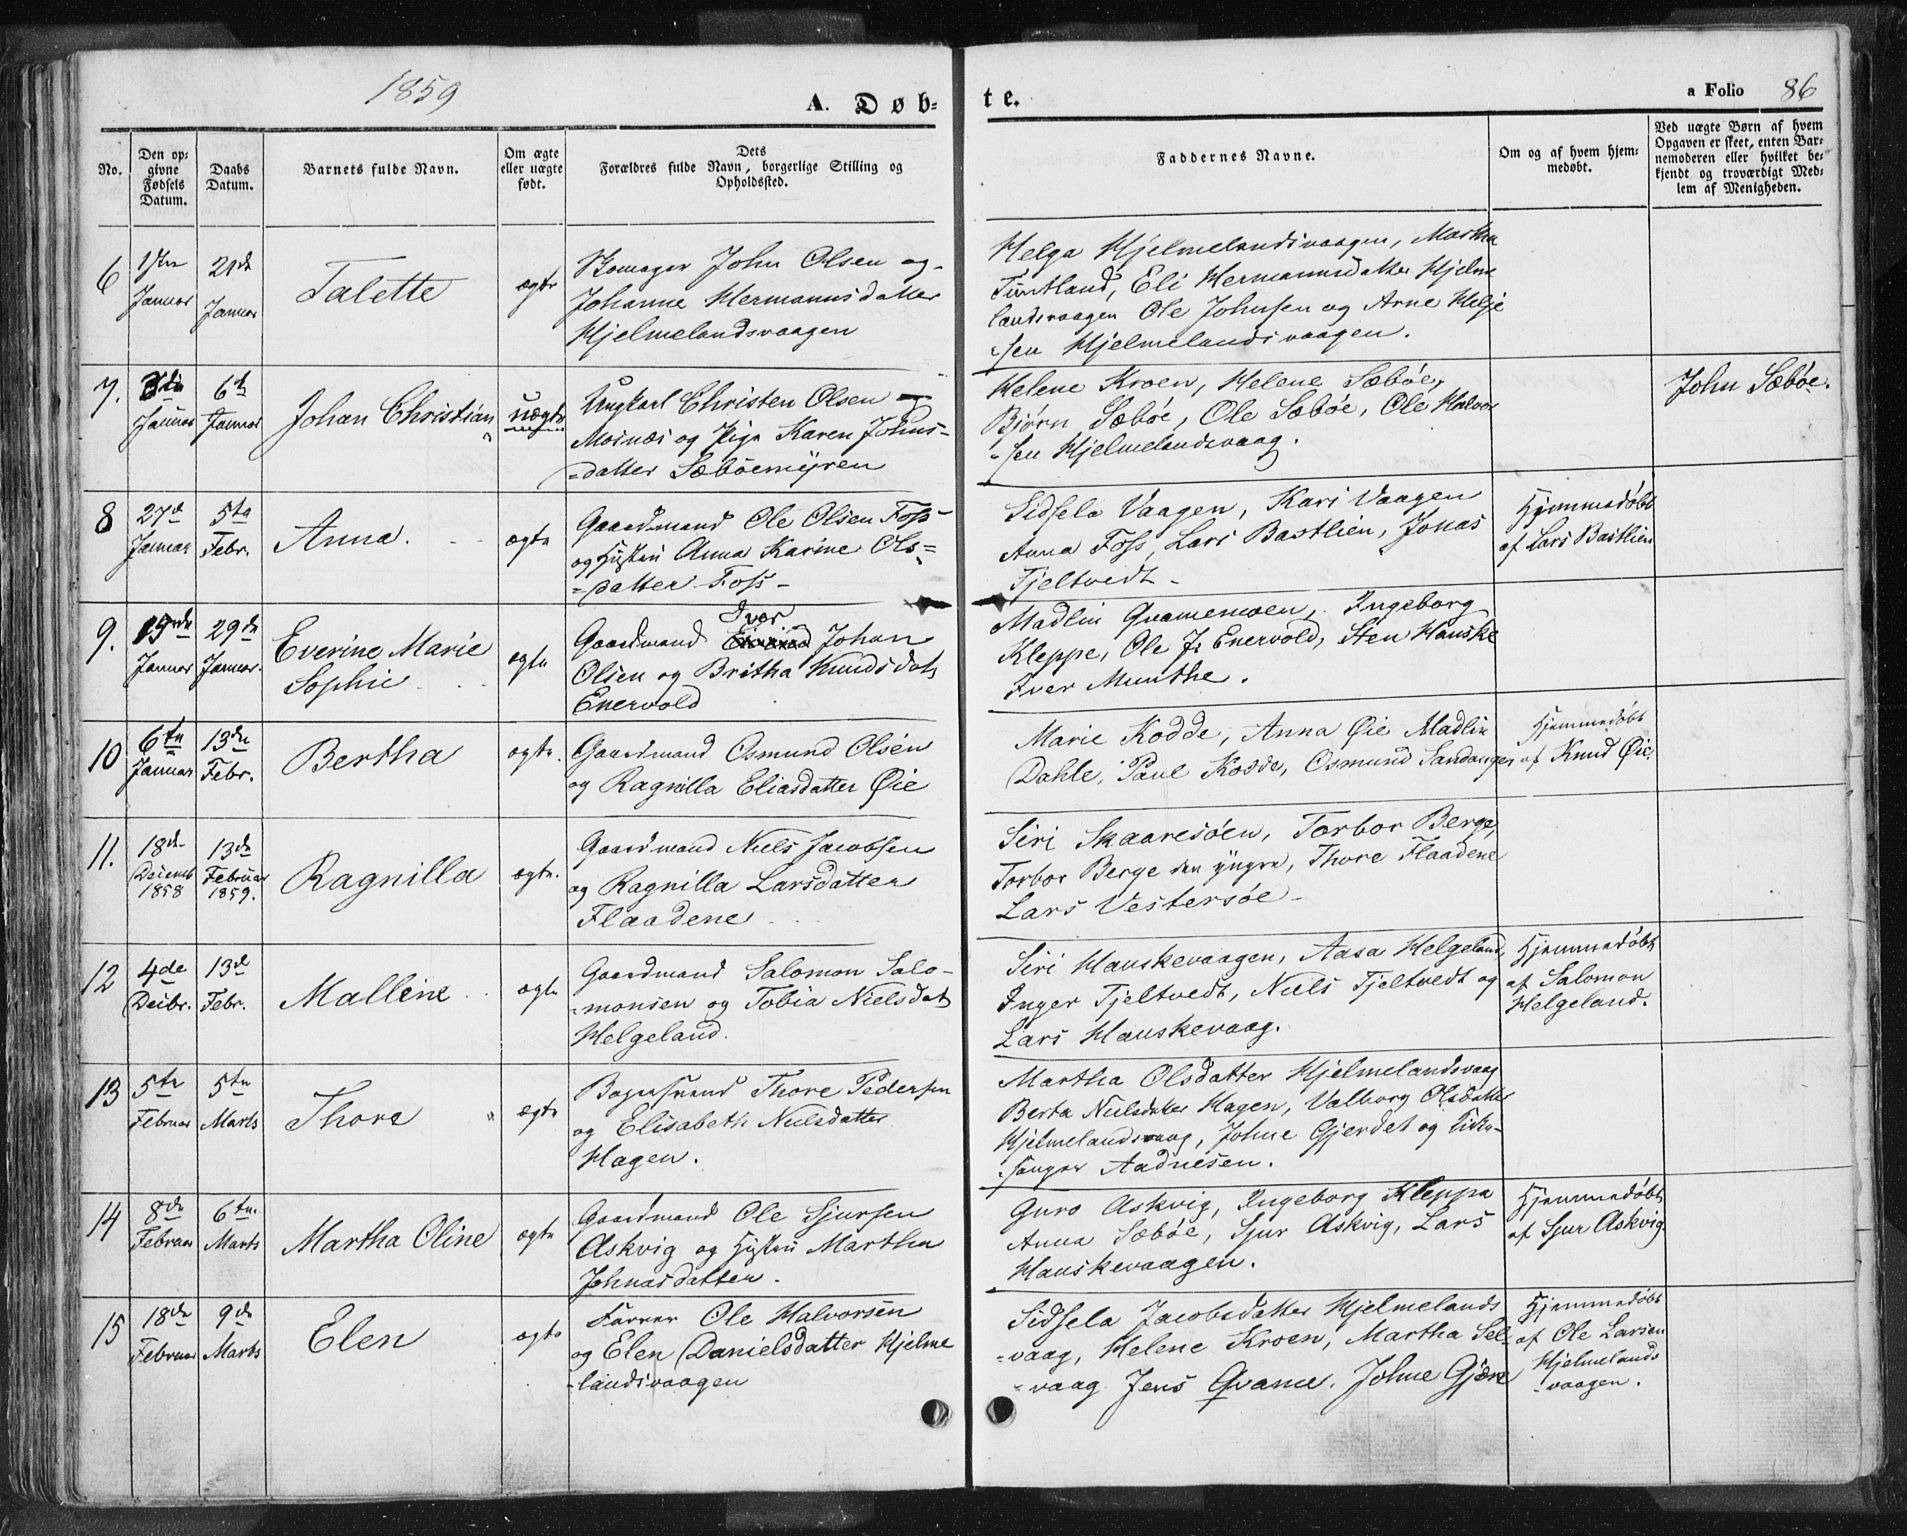 1859
A. Døb-
te.
a Folio 86
No.
Den op-
givne
Fødsels
Datum.
Daabs
Datum.
Barnets fulde Navn.
Om ægte
eller uægte
født.
Dets
Forældres fulde Navn, borgerlige Stilling og
Opholdssted.
Faddernes Navne.
Om og af hvem hjem-
medøbt.
Ved uægte Børn af hvem
Opgaven er skeet, enten Bar-
nemoderen eller hvilket be-
kjendt og troværdigt Med-
lem af Menigheden.
6
Januar
21de
Januar
Talette
ægte
Skomager John Olsen og
Johanne Hermannsdatter
Hjelmelandsvaagen
Helga Hjelmelandsvaagen, Martha
Tuntland, Eli Hermannsdatter Hjelme
landsvaagen Ole Johnsen og Arne Helje
sen Hjelmelandsvaagen.
7.
Januar
6te
Januar
Johan Christian
uægte
Ungkarl Christen Olsen
Mosnæs og Pige Karen Johns-
=datter Sæbøemyren
Helene Kroen, Helene Sæbøe,
Bjørn Sæbøe, Ole Sæbøe, Ole Halvor
=sen Hjelmelandsvaag.
John Sæbøe.
8
27de
Januar
5te
Febr.
Anna.
ægte
Gaardmand Ole Olsen Foss
og Hustru Anna Karine Ols=
=datter Foss -
Sidsela Vaagen, Kari Vaagen
Anna Foss, Lars Bastlien, Jonas
Tjeltvedt -
Hjemmedøbt
af Lars Bastlien
9.
Januar
29de
Januar.
Everine Marie
Sophie
ægte
Iver
Gaardmand Johan
Olsen og Britha Knudsdat
Enervold
Madlin Qvamemoen, Ingeborg
Kleppe, Ole J. Enervold, Sten Hauske
Iver Munthe.
10
6te
Januar
13de
Febr.
Bertha
ægte.
Gaardmand Osmund Olsen
og Ragnilla Eliasdatter Øie
Marie Kodde, Anna Øie Madlin
Dahle, Paul Kodde, Osmund Sandanger
Hjemmedøbt
af Knud Øie.
11.
18de
Decemb
1858
13de
Februar
1859.
Ragnilla
ægte.
Gaardmand Niels Jacobsen
og Ragnilla Larsdatter
Flaadene
Siri Skaaresøen, Torbor Berge,
Torbor Berge den yngre, Thore Flaadene
Lars Vestersøe -
12
4de
Decbr.
13de
Febr.
Mallene
ægte
Gaardmand Salomon Salo-
=monsen og Tobia Nielsdat
Helgeland.
Siri Hauskevaagen, Aasa Helgeland,
Inger Tjeltvedt, Niels Tjeltvedt og
Lars Hauskevaag.
Hjemmedøbt
af Salomon
Helgeland.
13
5te
Februar
5te
Marts
Thore
ægte
Thore Pedersen
og Elisabeth Nielsdatter
Hagen.
Martha Olsdatter Hjelmelandsvaag
Berta Nielsdatter Hagen, Valborg Olsdatter
Hjelmelandsvaag, Johne Gjerdet og Kirke-
=sanger Aadnesen.
14
8de
Februar
6te
Marts
Martha Oline
ægte
Gaardmand Ole Sjursen
Askvig og Hustru Martha
Johnasdatter.
Guro Askvig, Ingeborg Kleppa
Anna Sæbøe, Sjur Askvig, Lars
Hauskevaagen.
Hjemmedøbt
af Sjur Askvig
15
18de
Februar
9de
Marts
Elen
ægte
Farver Ole Halvorsen
og Elen Danielsdatter Hjelme
-landsvaagen
Sidsela Jacobsdatter Hjelmelands
-vaag, Helene Kroen, Martha Sel-
-vaag Jens Qvame. Johne Gjøre
Hjemmedøbt
af Ole Larsen
Hjelmelands
-vaagen.